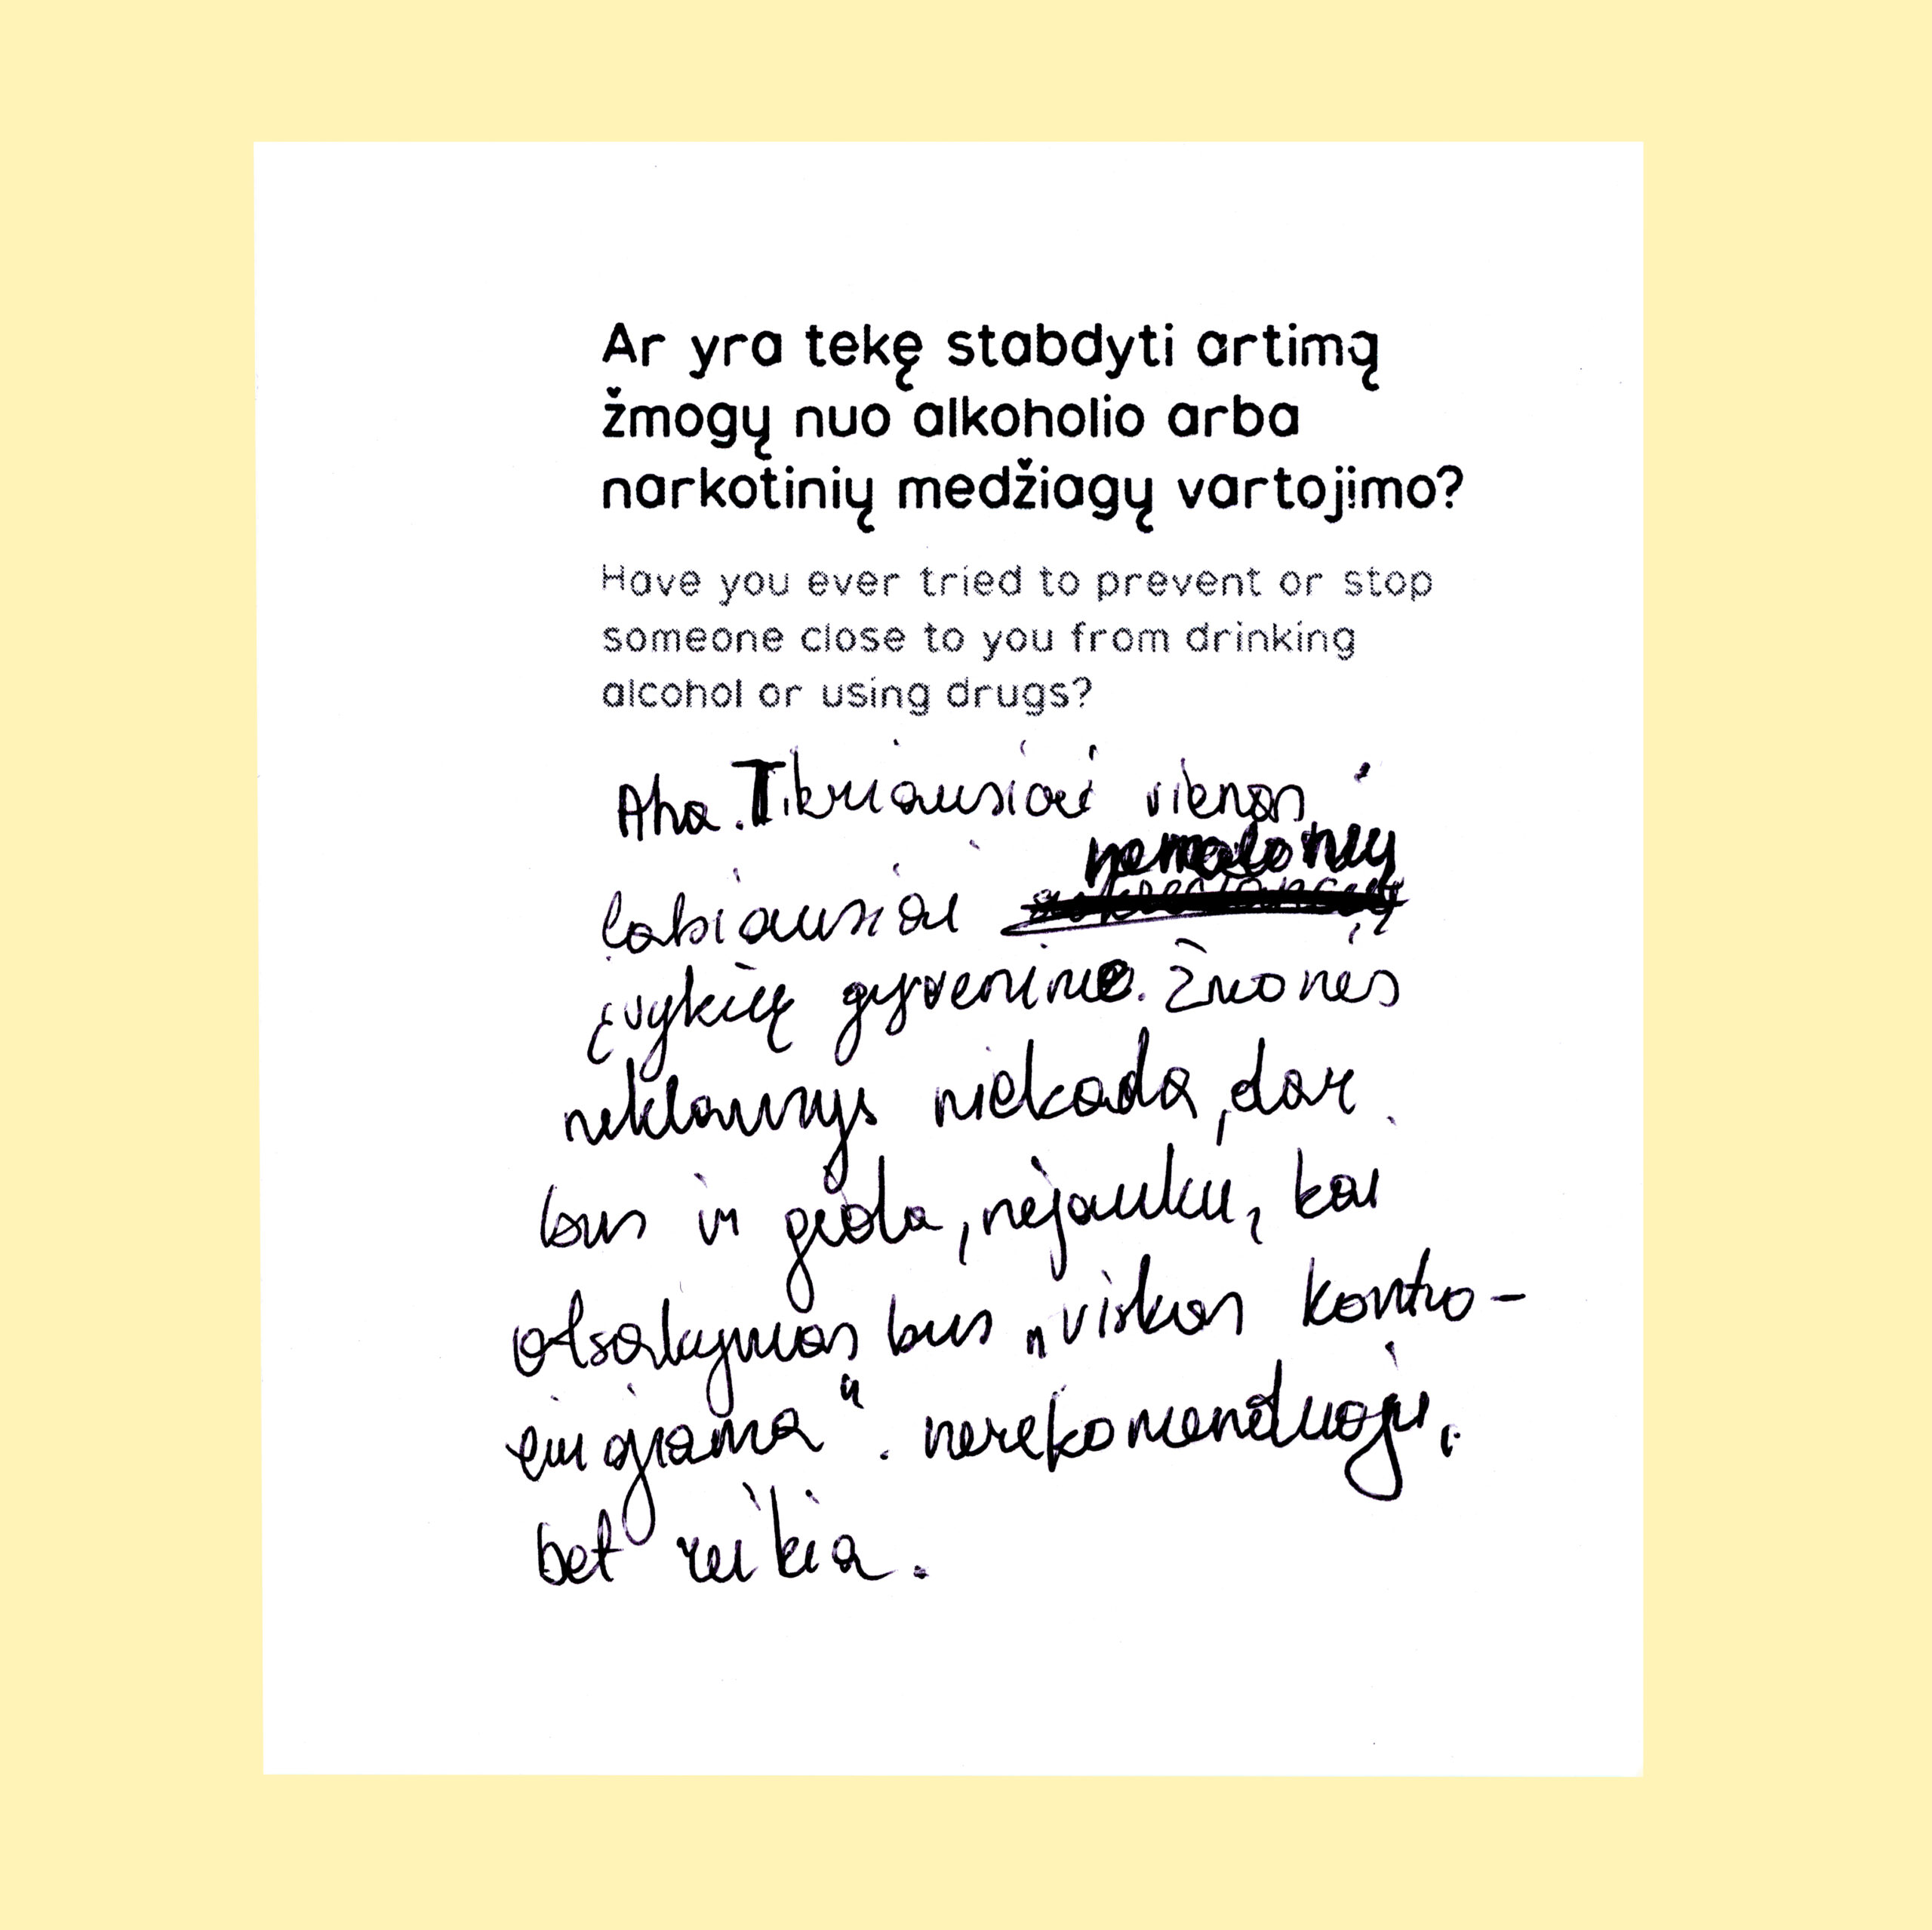 Ar yra tekę stabdyti artimą
žmogų nuo alkoholio arba
narkotinių medžiagų vartojimo?
Have you ever tried to prevent or stop
someone close to you from drinking
alcohol or using drugs?
Aha. Tikriausiai vienas
nemalonių
labiausiai
įvykių gyvenime. Žmonės
neklausys niekada, dar
bus ir gėda, nejauku, kai
atsakymas bus „viskas kontro-
eiuojama“. nerekomenduoju,
bet reikia.